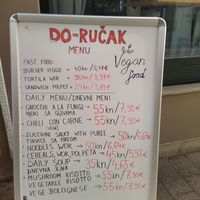 DO-RUČAK
MENU
Vegan
food
FAST FOOD:
BURGER VEGGIE - 40kn/5,31€
TORTILLA WOK - 30kn/3,98€
SANDWICH POLPET
DAILY MENU/DNEVNI MENI
GNOCCHI A LA FUNGI - 55kn/7,30€
NJOKI SA GLJIVAMA
CHILLI CON CARNE - 55kn/7,30€
ZUCCHINI SAUCE WITH PUREE
TIKVICE SA
NOODLES WOK - 50kn/6,64€
CEREALS, WOK, POLPETA - 45kn/5,97€
DAILY SOUP - 35kn/4,65€
DNEVNA JUHA
MUSHROOM RISOTTO - 55kn/7,30€
VEGETABLE RISOTTO
VEGE BOLOGNESE - 55kn/7,30€